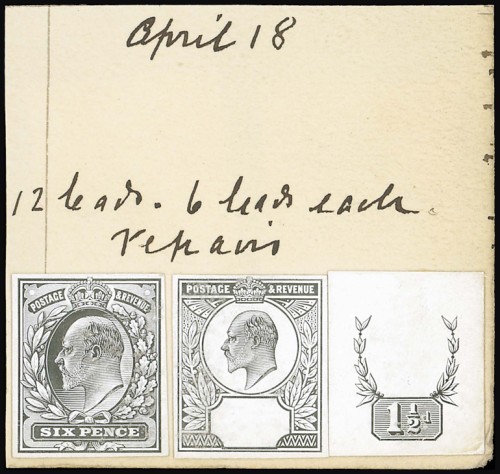 April 18
12 leads. 6 leads each.
repairs
POSTAGE & REVENUE
SIX PENCE
POSTAGE & REVENUE
1½d